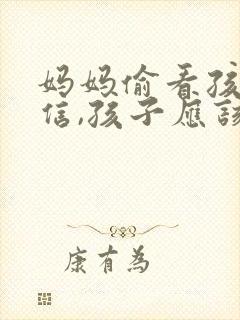 妈妈偷看孩
信,孩子应该
康有為